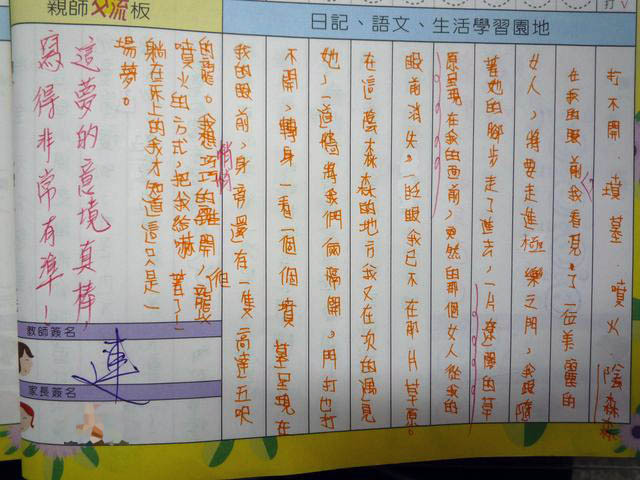 親師交流板
日記、語文、生活學習園地
打
打不開 墳墓 噴火 陰森森
在我的眼前,我看見了一位美麗的
女人,將要走進極樂之門,我跟隨
著她的腳步走了進去,一片遼闊的草
原呈現在我的面前,忽然的那個女人從我的
眼前消失,一眨眼我已不在那片草原。
在這陰森森的地方我又在次的遇見
她,一道牆將我們倆隔開,門打也打
不開,轉身一看一個個墳墓呈現在
我的眼前,身旁還有一隻高達五呎
的龍。我想巧巧的離開,龍
悄悄
噴火的方式,把我給嚇著了!
躺在床上的我才知道這只是一
場夢。
這夢的意境真棒,
寫得非常有準!
教師簽名
連
家長簽名